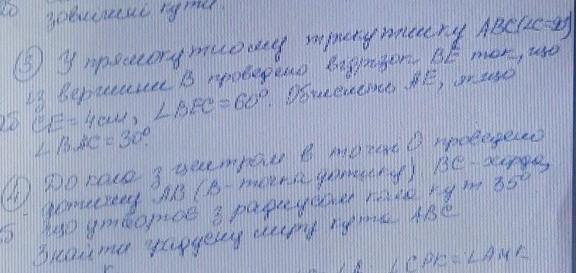 зовнішні кути.
③ У прямокутному трикутнику ABC (∠C=90°)
із вершини B проведено відрізок BE так, що
CE=4см, ∠BEC=60°. Обчисліть AE, якщо
∠BAC=30°
④ До кола з центром в точці O проведено
дотичну AB (B-точка дотику) BC-хорда,
що утворює з радіусом кола кут 35°.
Знайти градусну міру кута ABC
∠CPK=∠AMK